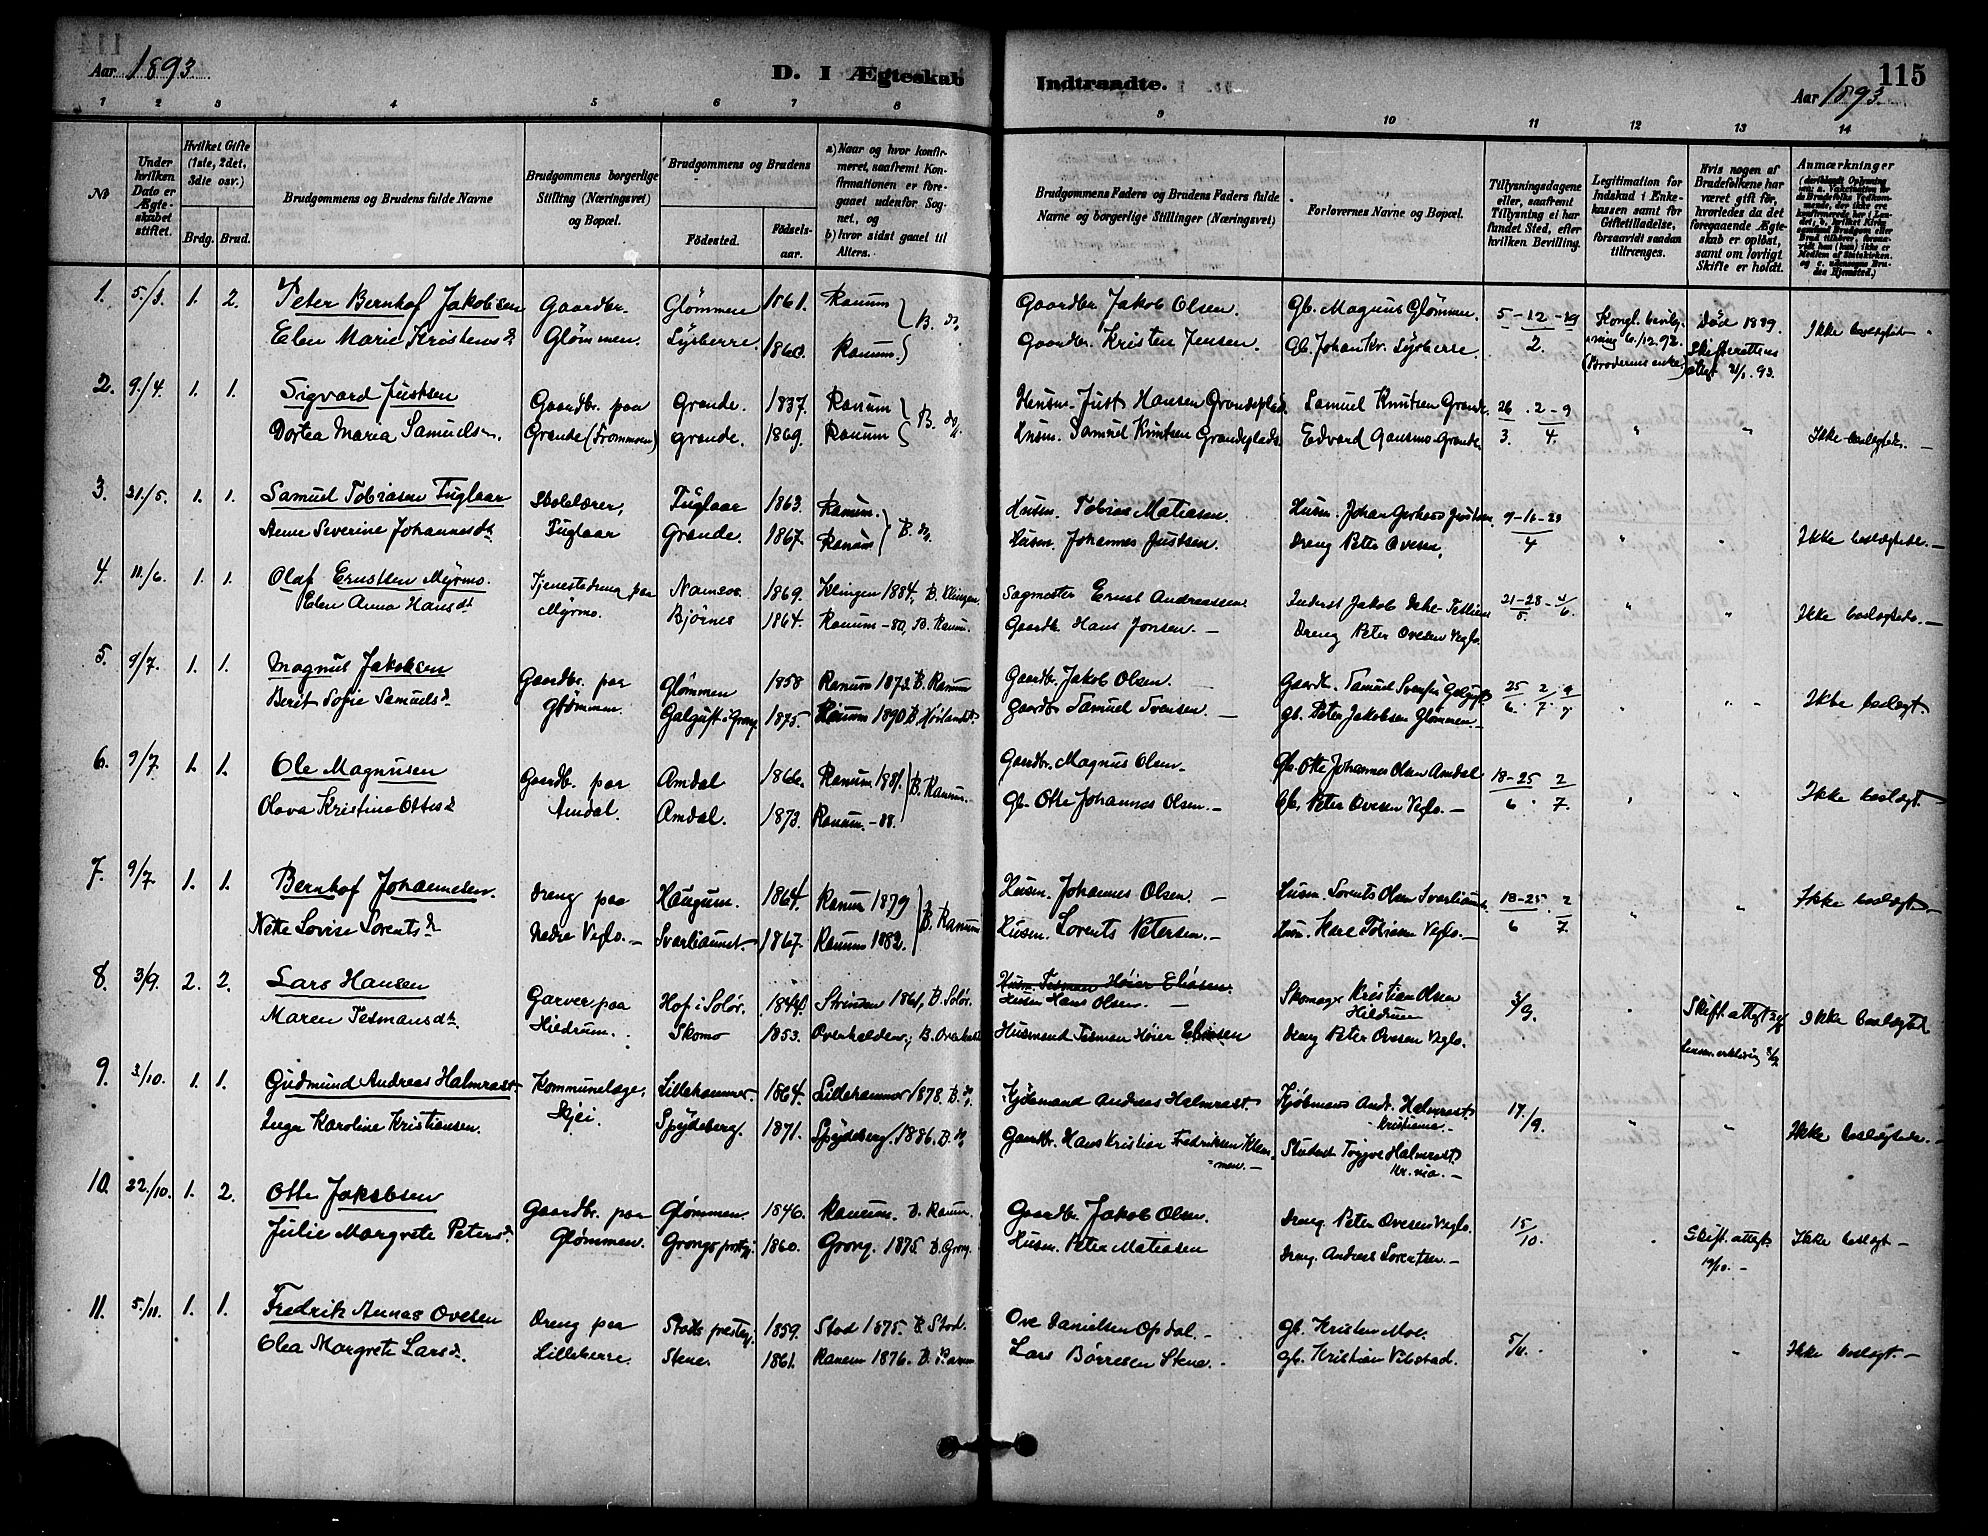 Aar 1893.
D. I Ægteskab Indtraadte.
Aar 1893.
115
1 2 3 4 5 6 7 8 9 10 11 12 13 14
No
Under hvilken Dato er Ægteskabet stiftet.
Hvilket Gifte (1ste, 2det, 3die osv.)
Brdg. Brud.
Brudgommens og Brudens fulde Navne
Brudgommens borgerlige Stilling (Næringsvei) og Bopæl.
Brudgommens og Brudens
Fødested.
Fødselsaar.
a) Naar og hvor konfirmeret, saafremt Konfirmationen er foregaaet udenfor Sognet, og
b) hvor sidst gaaet til Alters.
Brudgommens Faders og Brudens Faders fulde Navne og borgerlige Stillinger (Næringsvei)
Forlovernes Navne og Bopæl.
Tillysningsdagene eller, saafremt Tillysning ei har fundet Sted, efter hvilken Bevilling.
Legitimation for Indskud i Enkekassen samt for Giftetilladelse, forsaavidt saadan tiltrænges.
Hvis nogen af Brudefolkene har været gift før, hvorledes da det foregaaende Ægteskab er opløst, samt om lovligt Skifte er holdt.
Anmærkninger
1. 5/3. 1. 2. Peter Bernhof Jakobsen Gaardbr. Glømmen 1861. Ranum B. do. Gaardbr. Jakob Olsen. Gb. Magnus Glømmen. 5-12-19 Kongl. bevilg- Død 1889. Ikke beslægtet
Elen Marie Kristensd. Glømmen. Lysberre. Ranum. Gaardbr. Kristen Jensen. Gb. Johan Kr. Lysberre. 2. ning 6/12 92. Skifterettens
(Broderens enke) attest 93.
2. 9/4. 1. 1. Sigvard Justsen Gaardbr. paa Grande. 1837. Ranum B. do. Husm. Just Hansen Grandeplads. Samuel Knutsen Grande. 26 . 2-9
Dortea Maria Samuelsd. Grande (Frommoen) Grande. 1869. Ranum Husm. Samuel Knutsen Grandeplads. Edvard Gansmo-Grande 3. 4. " " Ikke beslægtede. -
3. 21/5. 1. 1. Samuel Tobiasen Fuglaar Skolelærer, Fuglaar 1863. Ranum. B. do. Husm. Tobias Matiasen. Husm. Johan Gerhard Justsen 9-16-23
Anne Severine Johannesdt. Fuglaar Grande. 1867. Ranum Husm. Johannes Justsen. Dreng Peter Ovesen, 4 " " Ikke beslægtede. -
4. 11/6. 1. 1. Olaf Ernstsen Myrmo. Tjenestedreng paa Namsos 1869. Klingen 1884, B. Klingen. Sagmester Ernst Andreassen. Inderst Jakob 21-28-4/6
Elen Anna Hansdt. Myrmo. Bjørnes 1864. Ranum -80, B. Ranum. Gaardb. Hans Jonsen. - Dreng Peter Ovesen Veglo. 5. " " Ikke beslægtede. -
5. 9/7. 1. 1. Magnus Jakobsen Gaardbr. paa Glømmen 1858 Ranum 1873. B. Ranum Gaardbr. Jakob Olsen. Gaardb. Samuel Svensen Galguft. 25 2 9
Berit Sofie Samuelsd. Glømmen. Galguft i Grong 1875. Ranum 1890. B. Høilandet. Gaardbr. Samuel Svensen. - Gb. Peter Jakobsen Glømmen. - 6. 7. 7 " " Ikke beslægt. -
6. 9/7. 1. 1. Ole Magnusen Gaardb. paa Amdal 1866. Ranum 1881. B. Ranum. Gaardbr. Magnus Olsen. Gb. Otte Johannes Olsen Amdal 18-25 2
Olava Kristina Ottesd. Amdal. Amdal. 1873. Ranum. -88. Gb. Otte Johannes Olsen. - Gb. Peter Ovesen Veglo. - 6 . 7. " " Ikke beslægt.
7. 9/7. 1. 1. Bernhof Johannesen. Dreng paa Haugum. 1864. Ranum 1879 B. Ranum Husm. Johannes Olsen. - Husm. Lorents Olsen Svarliaunet. 18-25. 2 Ikke beslægt. -
Nette Lovise Lorentsd. Nedre Veglo. - Svarliaunet 1867. Ranum 1882. Husm. Lorents Petersen. - Husm. Tobiasen Veglo. - 6 7. " "
8. 3/9. 2. 2. Lars Hansen Garver paa Hof i Solør. 1844. Strinden 1861, B. Solør. Husm. Tesman Høier Eliasen. Skomager Kristian Olsen 3/9.
Husm. Hans Olsen. - Hildrum
Maren Tesmansdt. Hildrum. Skomo 1853. Overhalden; B. Overhalden Husmand Tesman Høier Eliasen Dreng Peter Ovesen Veglo. " Skift. attest Ikke beslægtet
9. 3/10. 1. 1. Gudmund Andreas Halmrast Kommunelæge, Lillehammer. 1864. Lillehammer 1878. B. do. Andreas Halmrast. Kjøbmand Andr. Halmrast Kristiania. 17/9.
Inga Karoline Kristiansen. Skjei. Spydeberg. 1871. Spydeberg. 1886. B. do. Gaardbr. Hans Kristian Fredriksen Klemmen. - Student Trygve Halmrast Kr.nia. - " " Ikke beslægtede. -
10. 22/10. 1. 2. Otte Jakobsen Gaardbr. paa Glømmen. 1846. Ranum. B. Ranum. Gaardbr. Jakob Olsen. Dreng. Peter Ovesen Veglo. 15/10.
Julie Margrete Petersd. Glømmen. Grongs prestgj. 1860. Grong. 1875 B. Grong. Husm. Peter Matiasen Dreng. Andreas Lorentsen - " Skift. attest 19/10. - Ikke beslægt -
11. 5/11. 1. 1. Fredrik Annas Ovesen Dreng paa Stods prestgj. 1859. Stod 1875. B. Stod. Ove Danielsen Opdal. - Gb. Kristen Moe. 5/11.
Olea Margrete Larsd. Lilleberre. Stene 1861. Ranem 1876. B. Ranem. Lars Børresen Stene. - Gb. Kristian Vibstad. " " Ikke beslægt. -